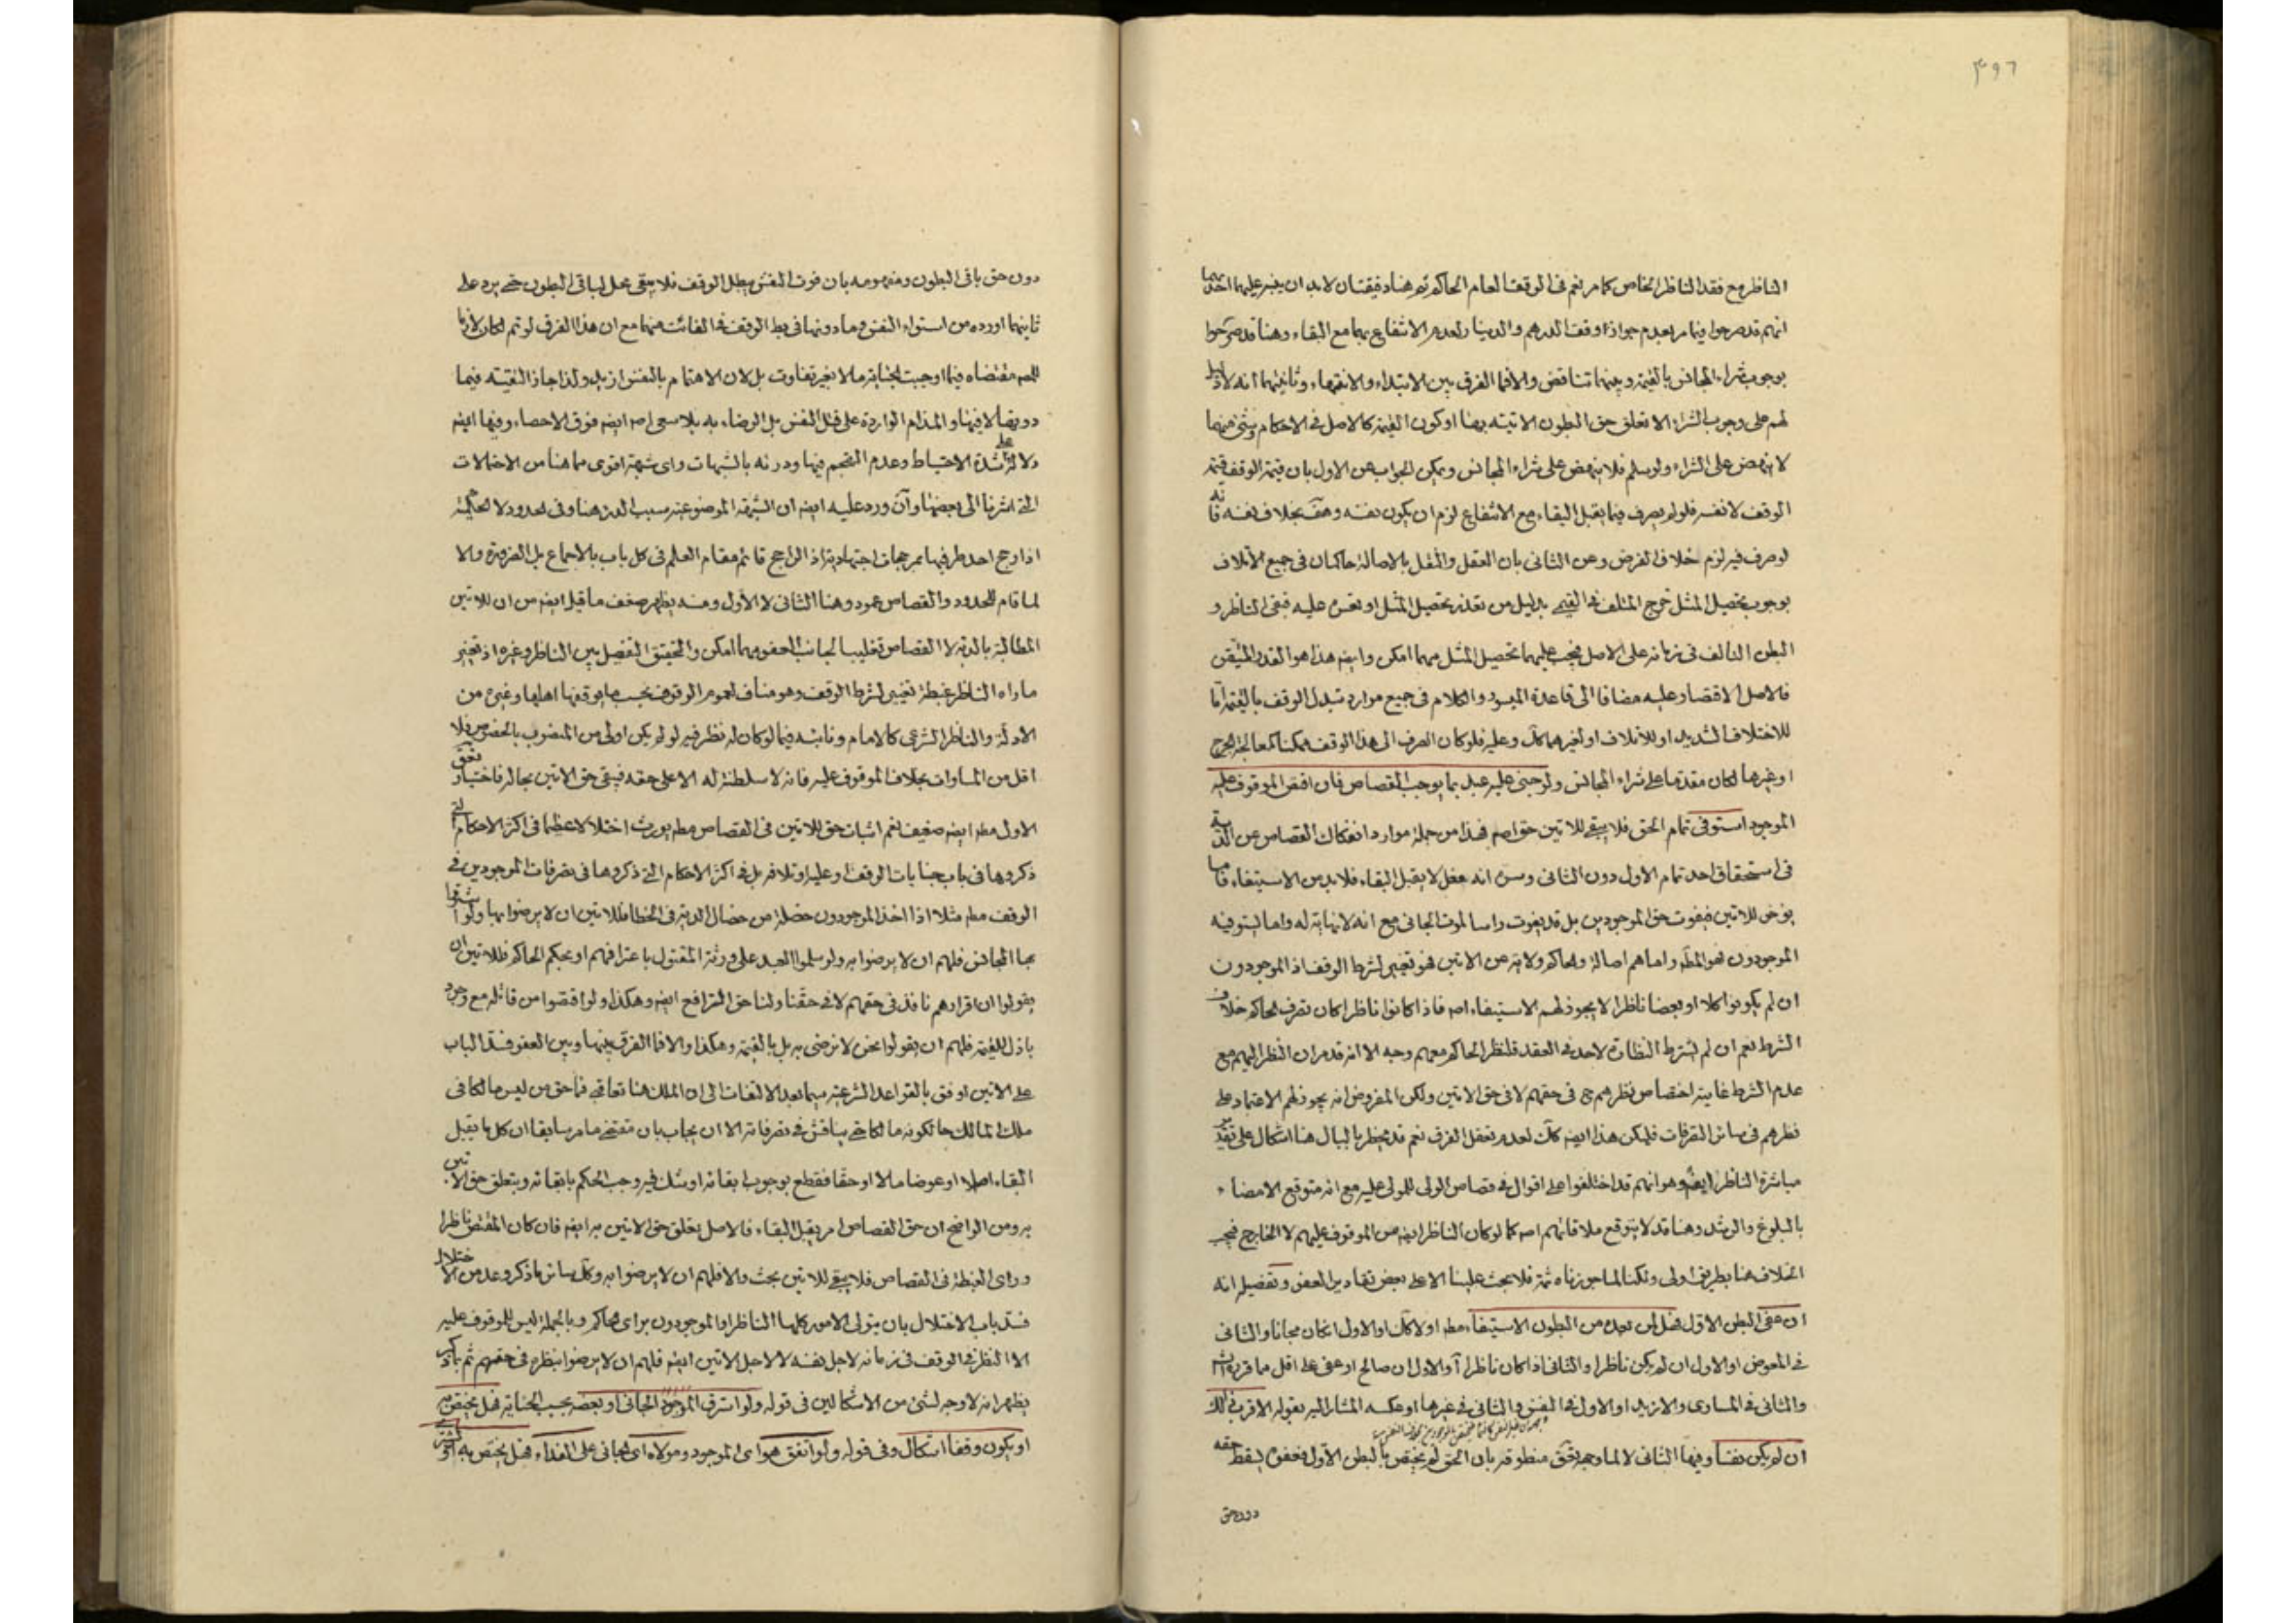 ٤٩٦
الناظر مع فقد الناظر الخاص كما مر نعم فى الوقف العام الحاكم ثم هنا دقيقتان لابد ان ينبه عليهما احديهما
انهم قد صرحوا فيما مر بعدم جواز وقف الدرهم والدينار لعدم الانتفاع بهما مع البقاء وهنا قد صرحوا
بوجوب شراء المجانس بالقيمة وبينهما تناقض والا فما الفرق بين الابتداء والانتهاء وثانيتهما انه لا دليل
لهم على وجوب الشراء الا تعلق حق البطون الاتية بها او كون القيمة كالاصل فى الاحكام وشئ منهما
لا ينهض على الشراء ولو سلم فلا ينهض على شراء المجانس ويمكن الجواب عن الاول بان قيمة الوقف قيمة
الوقف لا نفسه فلو لم يصرف فيما يقبل البقاء مع الانتفاع لزم ان يكون نفسه وهف بخلاف نفسه فانه
لو صرف فيه لزم خلاف الفرض وعن الثانى بان العقل والنقل بالاصالة حاكمان فى جميع الاتلاف
بوجوب تحصيل المثل خرج المتلف فى القيمى بدليل من تعذر تحصيل المثل او تعسره عليه فبقى الناظر و
البطن التالف فى زمانه على الاصل فيجب عليهما تحصيل المثل مهما امكن وايضه هذا هو القدر المتيقن
فالاصل الاقتصار عليه مضافا الى قاعدة الميسور والكلام فى جميع موارد تبدل الوقف بالقيمة اما
للاختلاف الشديد او للاتلاف او لغيرهما كك وعليه فلو كان الصرف الى هذا الوقف ممكنا كمعالجة الجرح
او غيرها لكان مقدما على شراء المجانس ولو جنى عليه عبد بما يوجب القصاص فان اقتص الموقوف عليه
الموجود استوفى تمام الحق فلا يبقى للاتين حق اصم فهذا من جملة موارد انفكاك القصاص عن الدية
فى استحقاق احد تمام الاول دون الثانى وسره انه فعل لا يقبل البقاء فلابد من الاستيفاء فاما
يؤخر للاتين فيفوت حق الموجودين بل قد يفوت راسا لموت الجانى مع انه لا نهاية له واما يستوفيه
الموجودون فهو المط واما هم اصالة والحاكم ولاية عن الاتين فهو تغيير لشرط الوقف اذ الموجودون
ان لم يكونوا كلا او بعضا ناظرا لا يجوز لهم الاستيفاء اصم فاذا كانوا ناظرا كان تصرف الحاكم خلاف
الشرط نعم ان لم يشترط النظارة لاحد فى العقد فلنظر الحاكم معهم وجه الا انه قد مر ان النظر اليهم مع
عدم الشرط غاية اختصاص نظرهم ح فى حقهم لا فى حق الاتين ولكن المفروض انه يجوز لهم الاعتماد على
نظرهم فى سائر التصرفات فليكن هذا ايضه كك لعدم تعقل الفرق نعم قد يخطر بالبال هنا اشكال على تقدير
مباشرة الناظر ايضه وهو انهم قد اختلفوا على اقوال فى قصاص الولى للمولى عليه مع انه متوقع الامضاء
بالبلوغ والرشد وهنا قد لا يتوقع ملاقاتهم اصم كما لو كان الناظر ايضه من الموقوف عليهم لا الخارج فيجب
الخلاف هنا بطريق اولى ولكنا لما جوزناه ثمة فلا بحث علينا الا على بعض تقادير العفو وتفصيله انه
ان عفى البطن الاول فهل لمن بعده من البطون الاستيفاء مطه او لا كك او الاول ان كان مجانا والثانى
فى المعوض او الاول ان لم يكن ناظرا والثانى اذا كان ناظرا او الاول ان صالح او عفى على اقل مما قرره الشرع
والثانى فى المساوى والازيد او الاول فى النفس والثانى فى غيرها او عكسه المشار اليه بقوله الاقرب ذلك
ان لم يكن نفسا وفيها الثانى لا لما وجهه المحقق منطوقه بان الحق لم يختص بالبطن الاول فعفوه يسقط حقه
دون حق
دون حق باقى البطون ومفهومه بان فوت النفس يبطل الوقف فلا يبقى محل لباقى البطون حتى يرد على
ثانيهما اورده من استواء النفس وما دونها فى بطء الوقف فى الفائت منهما مع ان هذا الفرق لو تم لكان لازما
للعم مقتضاه فيما اوجبت الجناية مالا بغير تفاوت بل لان الاهتمام بالنفس ازيد ولذا جاز التقية فيما
دونها لا فيها والمذام الواردة على قتل النفس بل الرضاء به بلا سعى اصم ايضه فوق الاحصاء وفيها ايضه
دلالة على شدة الاحتياط وعدم التهجم فيها ودرئه بالشبهات واى شبهة اقوى مما هنا من الاحتمالات
التى اشرنا الى بعضها وان ورد عليه ايضه ان الشبهة الموضوعية سبب الدرء هنا وفى الحدود لا الحكمية
اذا رجح احد طرفيها بمرجحات اجتهادية اذ الراجح قائم مقام العلم فى كل باب بالاجماع بل الضرورة والا
لما قام للحدود والقصاص عمود وهنا الثانى لا الاول ومنه يظهر ضعف ما قيل ايضه من ان للاتين
المطالبة بالدية لا القصاص تغليبا لجانب العفو مهما امكن والتحقيق التفصيل بين الناظر وغيره اذ تغيير
ما راه الناظر غبطة تغيير لشرط الوقف وهو مناف لعموم الوقوف بحسب ما يوقفها اهلها وغيره من
الادلة والناظر الشرعى كالامام ونائبه فيما لو كان له نظر فيه لو لم يكن اولى من المنصوب بالخصوص فلا
اقل من المساوات بخلاف الموقوف عليه فانه لا سلطنة له الا على حقه فيبقى حق الاتين بحاله فاختيار
الاول مطه ايضه ضعيف نعم اثبات حق للاتين فى القصاص مطه يورث اختلالا عظيما فى اكثر الاحكام التى
ذكروها فى باب جنايات الوقف او عليه او تلافه بل فى اكثر الاحكام التى ذكروها فى تصرفات الموجودين فى
الوقف مطه مثلا اذا اخذ الموجودون خصلة من خصال الدية فى الخطا فللاتين ان لا يرضوا بها ولو اشتروا
بها المجانس فلهم ان لا يرضوا به ولو سلموا العبد على ورثة المقتول باعترافهم او بحكم الحاكم فللاتين ان
يقولوا ان اقرارهم نافذ فى حقهم لا فى حقنا ولنا حق الترافع ايضه وهكذا ولو اقتصوا من قاتله مع وجود
باذل للقيمة فلهم ان يقولوا نحن لا نرضى به بل بالقيمة وهكذا والا فما الفرق بينها وبين العفو فسد الباب
على الاتين اوفق بالقواعد الشرعية سيما بعد الالتفات الى ان الملك هنا تعاقبى فما حق من ليس مالكا فى
ملك المالك حال كونه مالكا حتى يناقش فى تصرفاته الا ان يجاب بان مقتضى ما مر سابقا ان كل ما يقبل
البقاء اصلا او عوضا مالا او حقا فقطع بوجوب ابقائه او شك فيه وجب الحكم بابقائه ويتعلق حق الاتين
به ومن الواضح ان حق القصاص امر يقبل البقاء فالاصل تعلق حق الاتين به ايضه فان كان المقتص ناظرا
وراى الغبطة فى القصاص فلا يبقى للاتين بحث والا فلهم ان لا يرضوا به وكك سائر ما ذكر وعد من الاختلال
فسد باب الاختلال بان يتولى الامور كلها الناظر او الموجودون براى الحاكم وبالجملة ليس للموقوف عليه
الا النظر فى الوقف فى زمانه لاجل نفسه لا لاجل الاتين ايضه فلهم ان لا يرضوا بنظره فى حقهم ثم بما ذكر
يظهر انه لا وجه لشئ من الاشكالين فى قوله ولو استرق الموجود الجانى او بعضه بحسب الجناية فهل يختص به
او يكون وقفا اشكال وفى قوله ولو اتفق هو اى الموجود ومولاه اى الجانى على الفداء فهل يختص به او